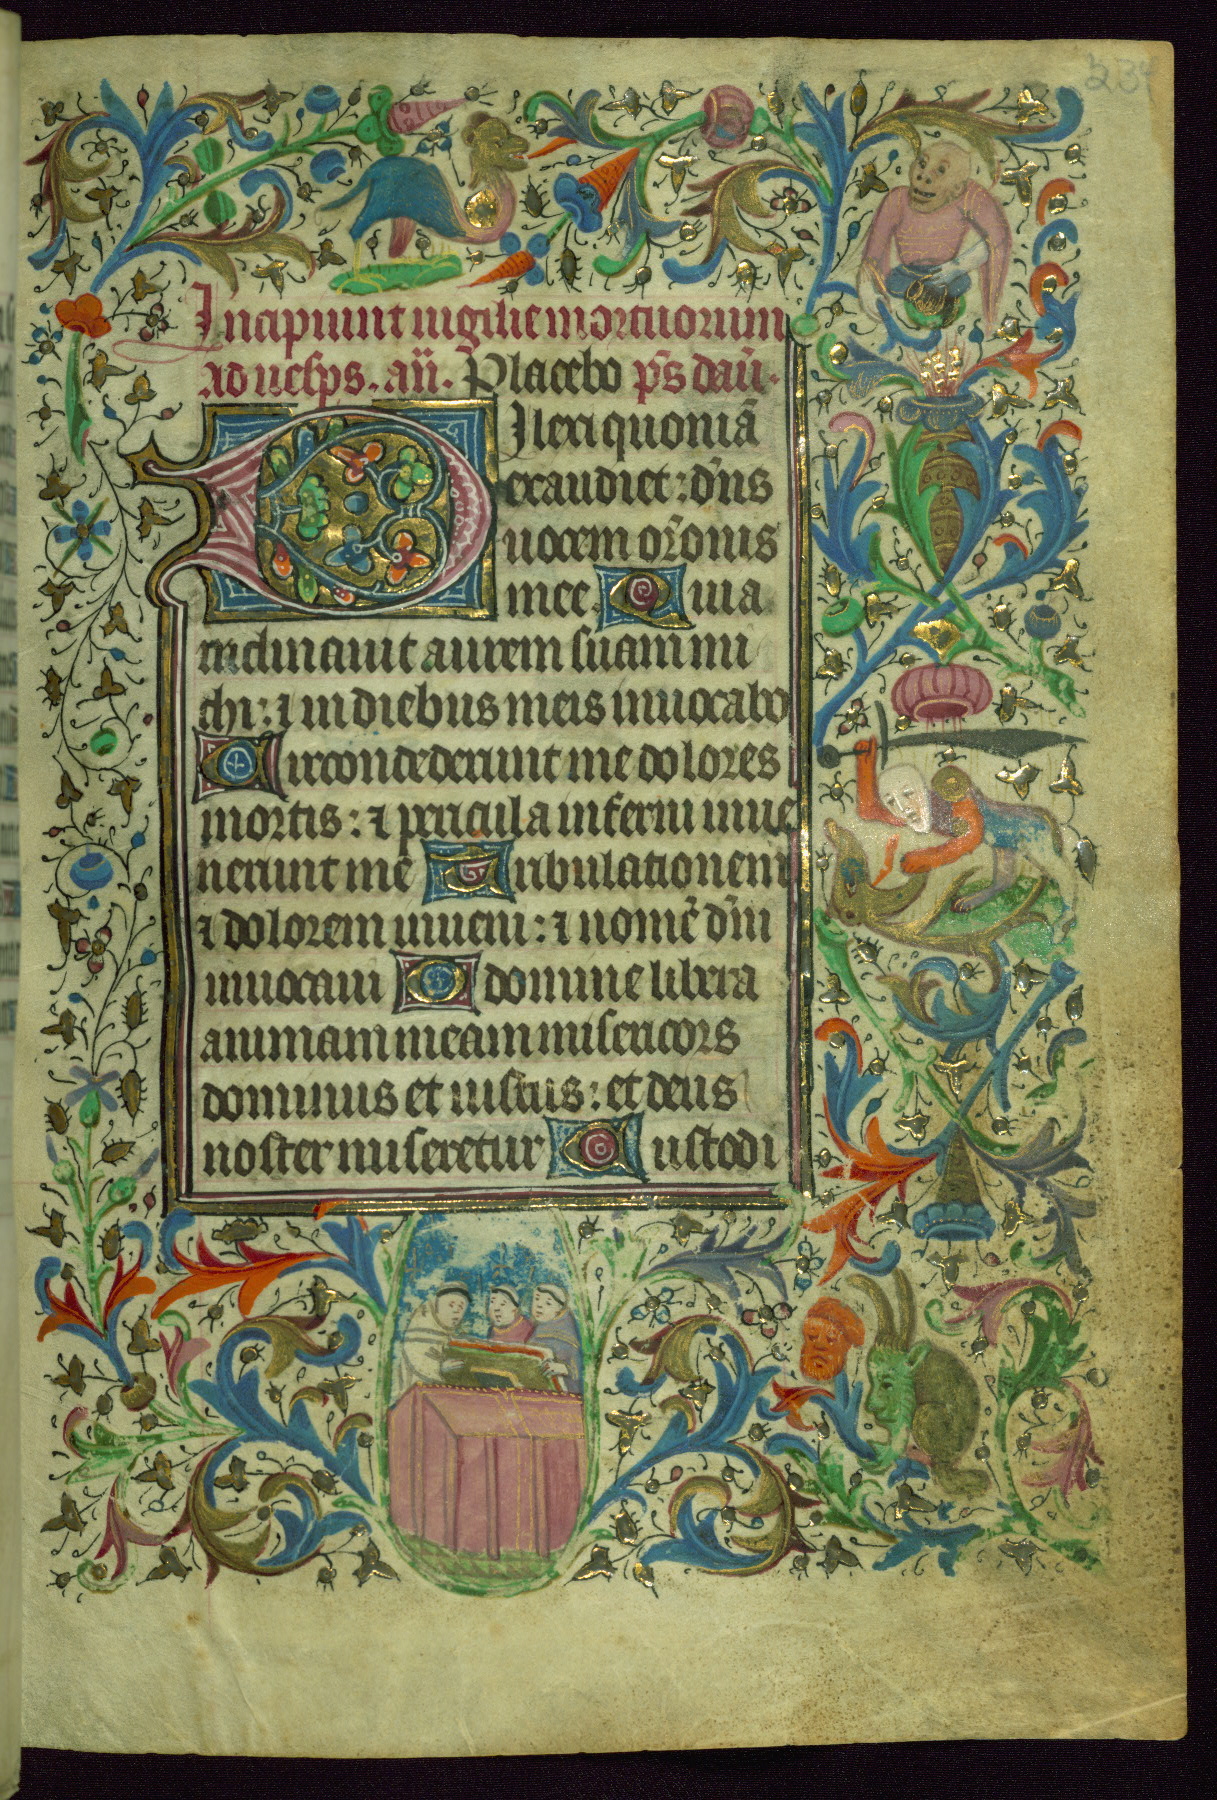 Incipiunt uigilie mortuorum
ad uesps. añ. Placebo ps dauî.
Dilexi quoniã
exaudiet: dñs
uocem orõnis
mee. Quia
inclinauit aurem suam mi
chi: ⁊ in diebus meis inuocabo
Circondederunt me dolores
mortis: ⁊ pericula inferni inue
nerunt me Tribulationem
⁊ dolorem inueni: ⁊ nomẽ dñi
inuocaui O domine libera
animam meam misericors
dominus et iustus: et deus
noster miseretur Custodi